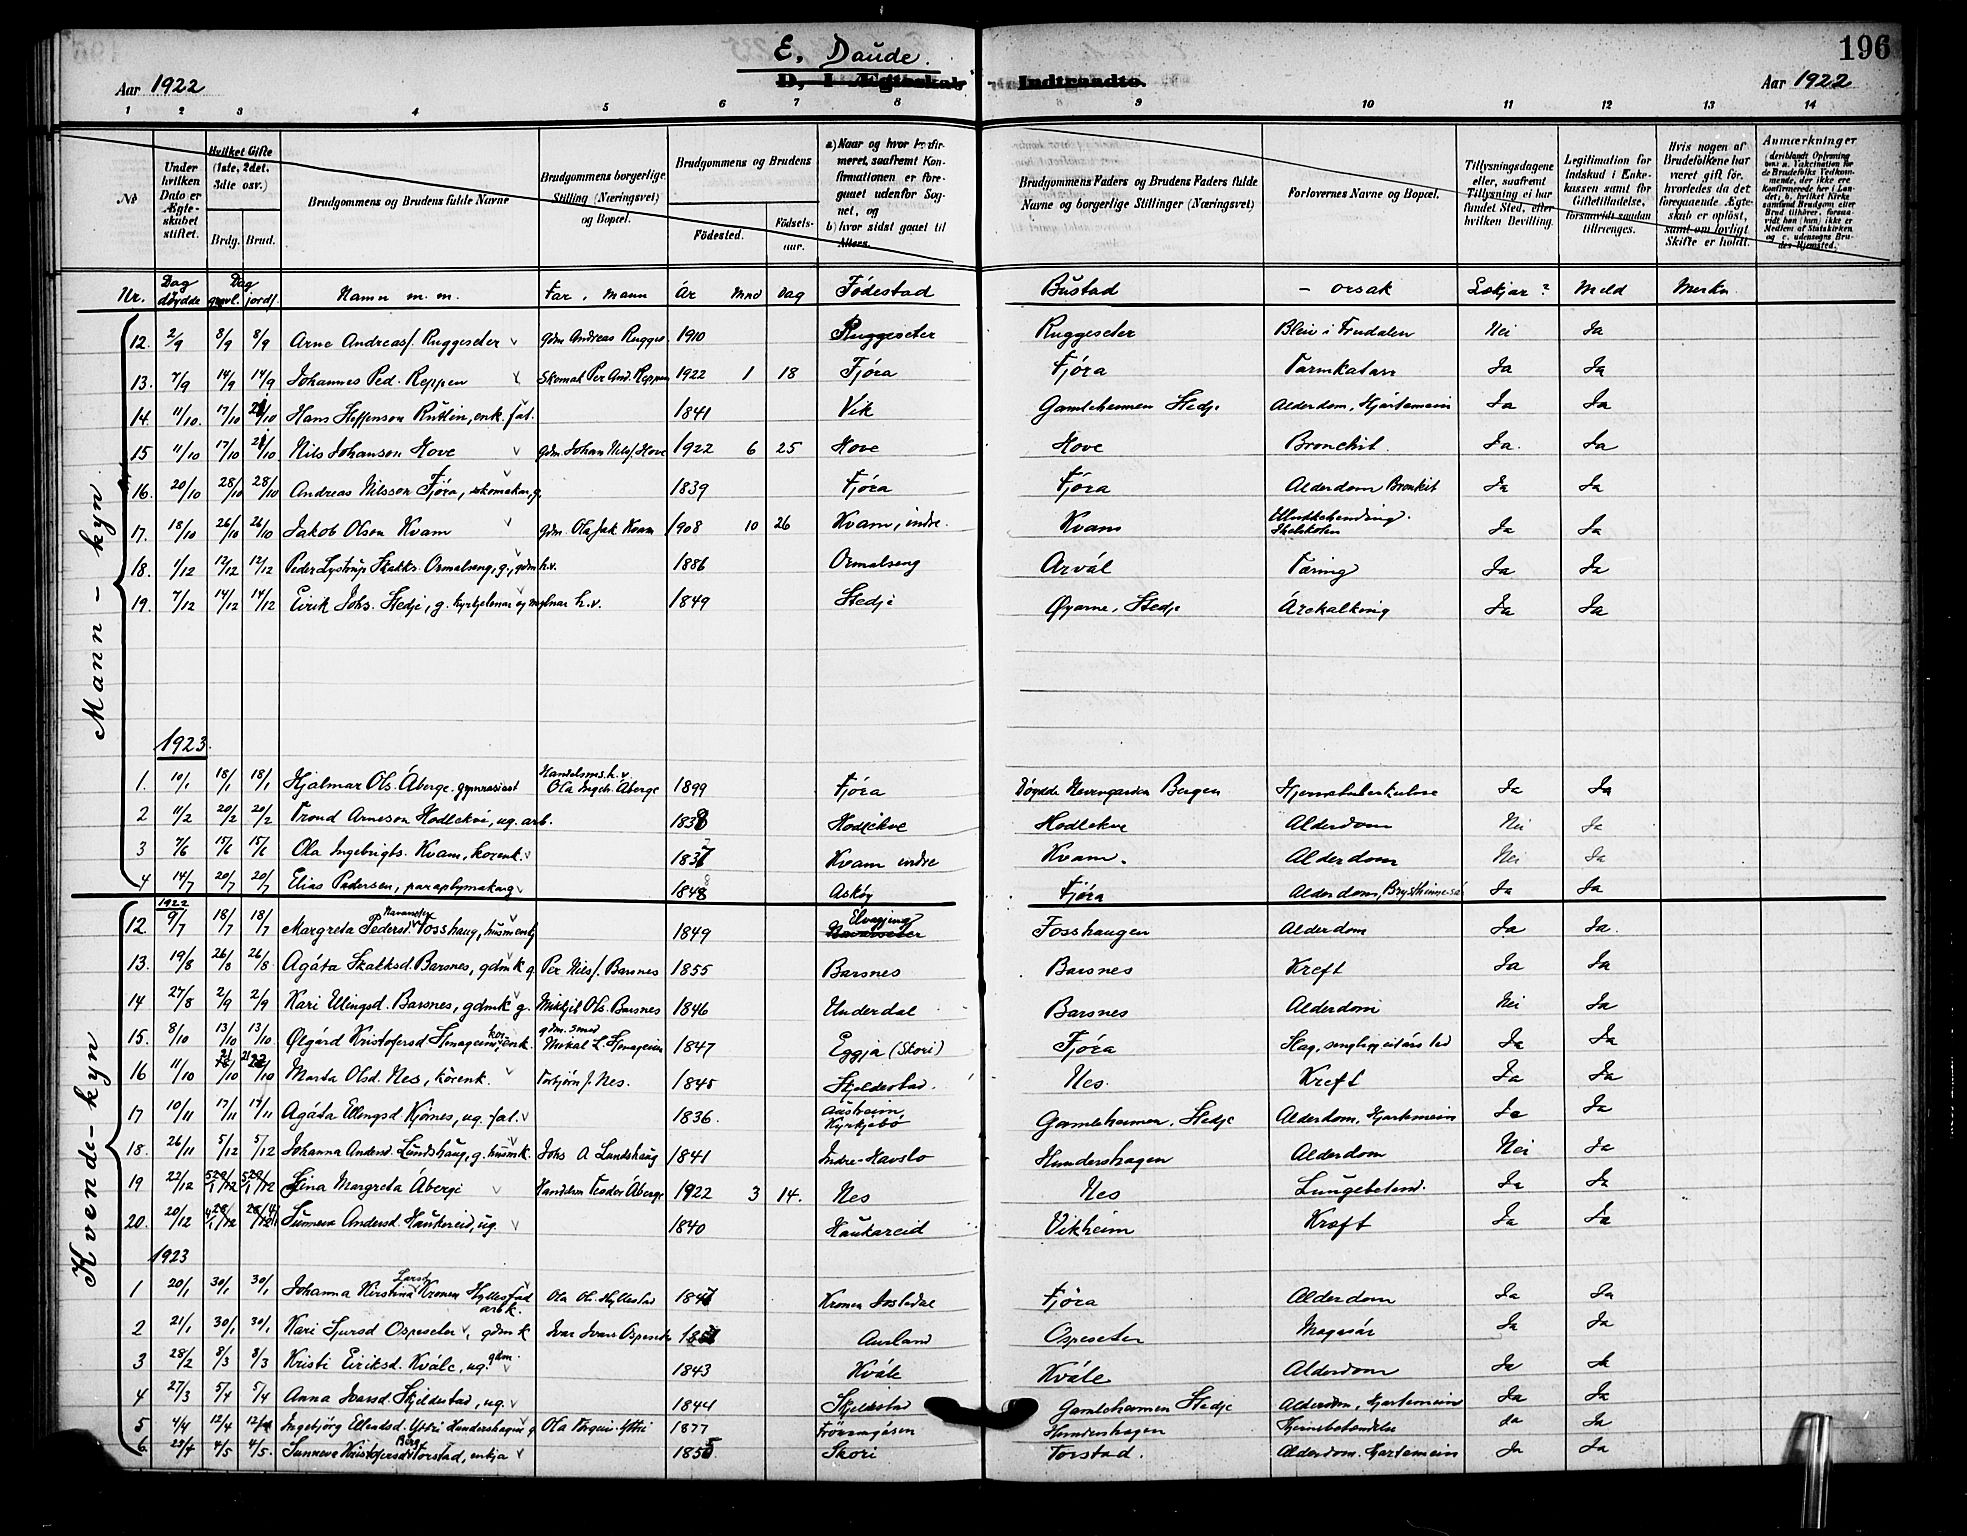 E. Daude.
D, 1. Ægteskab - Indtraadte.
196
Aar 1922
Aar 1922
1 2 3 4 5 6 7 8 9 10 11 12 13 14
No
Under hvilken Dato er Ægteskabet stiftet.
Hvilket Gifte (1ste, 2det, 3die osv.)
Brdg. Brud.
Brudgommens og Brudens fulde Navne
Brudgommens borgerlige Stilling (Næringsvei) og Bopæl.
Brudgommens og Brudens
Fødested. Fødselsaar.
a) Naar og hvor konfirmeret, saafremt Konfirmationen er foregaaet udenfor Sognet, og
b) hvor sidst gaaet til Alters.
Brudgommens Faders og Brudens Faders fulde Navne og borgerlige Stillinger (Næringsvei)
Forlovernes Navne og Bopæl.
Tillysningsdagene eller, saafremt Tillysning ei har fundet Sted, efter hvilken Bevilling.
Legitimation for Indskud i Enkekassen samt for Giftetilladelse, forsaavidt saadan tiltrænges.
Hvis nogen af Brudefolkene har været gift før, hvorledes da det foregaaende Ægteskab er opløst, samt om lovligt Skifte er holdt.
Anmærkninger
Nr. Dag døydde Dag gravl. jordf. Namn m. m. Far, mann År Mnd Dag Fødestad Bustad - orsak Lækjar? Meld Merkn
Mann-kyn
12. 2/9 8/9 8/9 Arne Andreasf. Ruggeseter gdm Andreas Rugges 1910 Ruggeseter Ruggeseter Nei Ja
13. 7/9 14/9 14/9 Johannes Ped. Reppen Skomak Per And. Reppen 1922 1 18 Fjøra Fjøra Tarmkatarr Ja Ja
14. 11/10 17/10 21/10 Hans Steffenson Rutlin, enk. fat. 1841 Vik Gamleheimen Stedje Alderdom, Hjartemein Ja Ja
15 11/10 17/10 21/10 Nils Johanson Hove gdm. Johan Nilsf. Hove 1922 6 25 Hove Hove Bronchit. Ja. Ja
16. 20/10 28/10 28/10 Andreas Nilsson Fjøra, skomakar, g. 1839 Fjøra Fjøra Alderdom Bronkit Ja Ja
17. 18/10 26/10 26/10 Jakob Olson Kvam gdm. Ola Jak Kvam 1908 10 26 Kvam, indre. Kvam Ja Ja
18. 1/12 12/12 12/12 Peder Lystrup Skakks. Ormalseng, g., gdm k.v. 1886 Ormalseng Arvål Tæring Ja Ja
19. 7/12 14/12 14/12 Eirik Johs. Stedje, g. kyrkjetenar og mylnar k.v. 1849 Stedje Øyarne, Stedje Årekalking Ja Ja
1923.
1. 10/1 18/1 18/1 Hjalmar Ols. Åberge. gymnasiast Handelsm. k.v. Ola Ingebr. Åberge 1899 Fjøra Døydde Haraldsgarden Bergen Hjernetuberkulose Ja Ja
2 11/2 20/2 20/2 Trond Arneson Hodlekve, ug. arb. 1838 Hodlekve Hodlekve Alderdom Nei Ja
3 7/6 15/6 15/6 Ola Ingebrigts. Kvam, korenk. 1837 Kvam indre Kvam. Alderdom Nei Ja
4 14/7 20/7 20/7 Elias Pedersen, paraplymakar g 1848 Askøy Fjøra Ja Ja
Kvende-kyn
1922
12 9/7 18/7 18/7 Margreta Pedersd. Navarseter Fosshaug, husm.enkj 1849 Fosshaugen Alderdom Ja Ja.
13. 19/8 26/8 26/8 Agåta Skakksd. Barsnes, gdmk g. Per Nilsf. Barsnes 1855 Barsnes Barsnes Kreft Ja Ja
14 27/8 2/9 2/9 Kari Ellingsd. Barsnes, gdmk g. Mikkjel Ols. Barsnes 1846 Underdal Barsnes Alderdom Nei Ja
15. 8/10 13/10 13/10 Ølgård Kristofersd 1847 Eggja (Skori) Fjøra Ja Ja
16 11/10 21/10 Marta Olsd. Nes, korenk. Torbjørn J. Nes. 1845 Skjeldestad. Nes. Kreft Ja Ja
17 10/11 17/11 17/11 Agåta Ellingsd Kjørnes, ug. fat. 1836. Austreim, Kyrkjebø Gamleheimen, Stedje Alderdom, Hjartemein Ja Ja
18. 26/11 5/12 5/12 Johanna Andersd. Lundshaug, g. husmk. Johs A Lundshaug 1841 Indre-Havslo Hundershagen Alderdom Nei Ja
19 22/12 Stina Margreta Åberge Handelsm Teodor Åberge 1922 3 14. Nes Nes Lungebetend. Ja Ja
20. 20/12 Sunneva Andersd. Haukereid, ug. 1840 Haukareid Vikheim Kræft Ja Ja
1923
1 20/1 30/1 30/1 Johanna Kirstina Larsd. Kronen Hyllestad arbk. Ola Ol. Hyllestad 1847 Kronen Jostedal Fjøra Alderdom Ja Ja
2 21/1 30/1 30/1 Kari Sjursd Ospeseter, gdmk Ivar Ivars Ospeset Aurland Ospeseter Magasår Ja Ja
3 28/2 8/3 8/3 Kristi Eiriksd. Kvåle, ug. gdm. 1843 Kvåle Kvåle Alderdom Ja Ja
4 27/3 5/4 5/4 Anna Ivarsd. Skjeldestad, ug. 1844 Skjeldestad Gamleheimen Stedje Alderdom, Hjartemein Ja Ja
5 4/4 12/4 12/4 Ingebjørg Ellendsd. Ytri Hundershagen g 1877 Hundershagen Hjernebetendelse Ja Ja
6. 23/4 4/5 4/5. Sunneva Kristofersd Berg Torstad, enkja 1855 Skori Torstad. Alderdom. Hjartemein Ja Ja